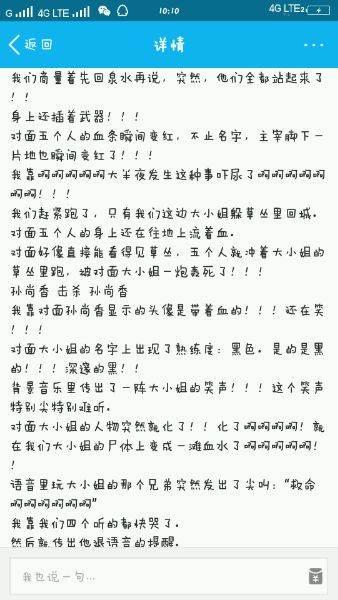 G 4G LTE 10:10 4G LTE2
返回 详情 ...
我们商量着先回泉水再说，突然，他们全都站起来了
！！
身上还插着武器！！！
对面五个人的血条瞬间变红，不止名字，主宰脚下一
片地也瞬间变红了！！！
我靠啊啊啊啊啊大半夜发生这种事吓尿了啊啊啊啊啊
啊啊！！！
我们赶紧跑了，只有我们这边大小姐躲草丛里回城。
对面五个人的身上还在往地上流着血.
对面好像直接能看得见草丛，五个人就冲着大小姐的
草丛里跑，被对面大小姐一炮轰死了！！！
孙尚香 击杀 孙尚香
我靠对面孙尚香显示的头像是带着血的！！！还在笑
！！！
对面大小姐的名字上出现了熟练度：黑色。是的是黑
的！！！深邃的黑！！
背景音乐里传出了一阵大小姐的笑声！！！这个笑声
特别尖特别难听.
对面大小姐的人物突然就化了！！化了啊啊啊啊！就
在我们大小姐的尸体上变成一滩血水了啊啊啊啊啊！
！
语音里玩大小姐的那个兄弟突然发出了尖叫：“救命
啊啊啊啊啊啊”
我靠我们四个听的都快哭了.
然后就传出他退语音的提醒.
我也说一句...